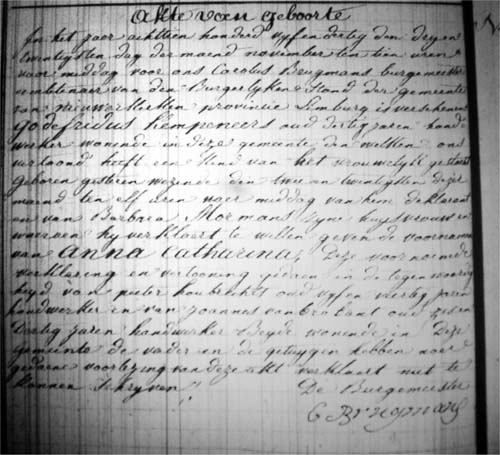 akte van geboorte
In het jaer achttien honderd vyfendertig den dryen
twintigsten dag der maend november ten tien uren
voor middag voor ons Cacolus Brugmans burgemeester
ambtenaer van den Burgerlyken Stand der gemeente
van nieuwerkerken provincie Limburg is verschenen
godefridus hempeneers oud dertig jaren hand
werker wonende in deze gemeente den welken ons
vertoond heeft een kind van het vrouwelyk geslacht
geboren gisteren wezende den twee en twintigsten dezer
maend ten elf uren naer middag van hem deklarant
en van Barbara Mormans zyne huysvrouw en
waervan hy verklaert te willen geven de voornamen
van anna Catharina, deze voornoemde
verklaring en vertooning gedaen in de tegenwoorig
heyd van pieter houbrechts oud vyfen veertig jaren
handwerker en van joannes van brabant oud
dertig jaren handwerker Beyde wonende in deze
gemeente de vader en de getuygen hebben naer
gedaene voorlezing van deze akt verklaert niet te
konnen schryven De Burgemeester
C Brugmans